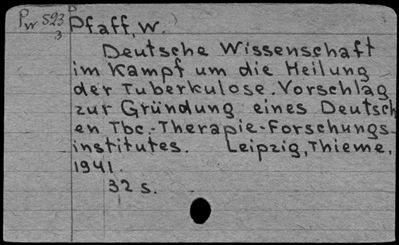 Pw 523
3
Pfaff, W.
Deutsche Wissenschaft
im Kampf um die Heilung
der Tuberkulose. Vorschlag
zur Gründung eines Deutsch
en Tbc.-Therapie-Forschungs-
institutes. Leipzig, Thieme,
1941.
32 S.